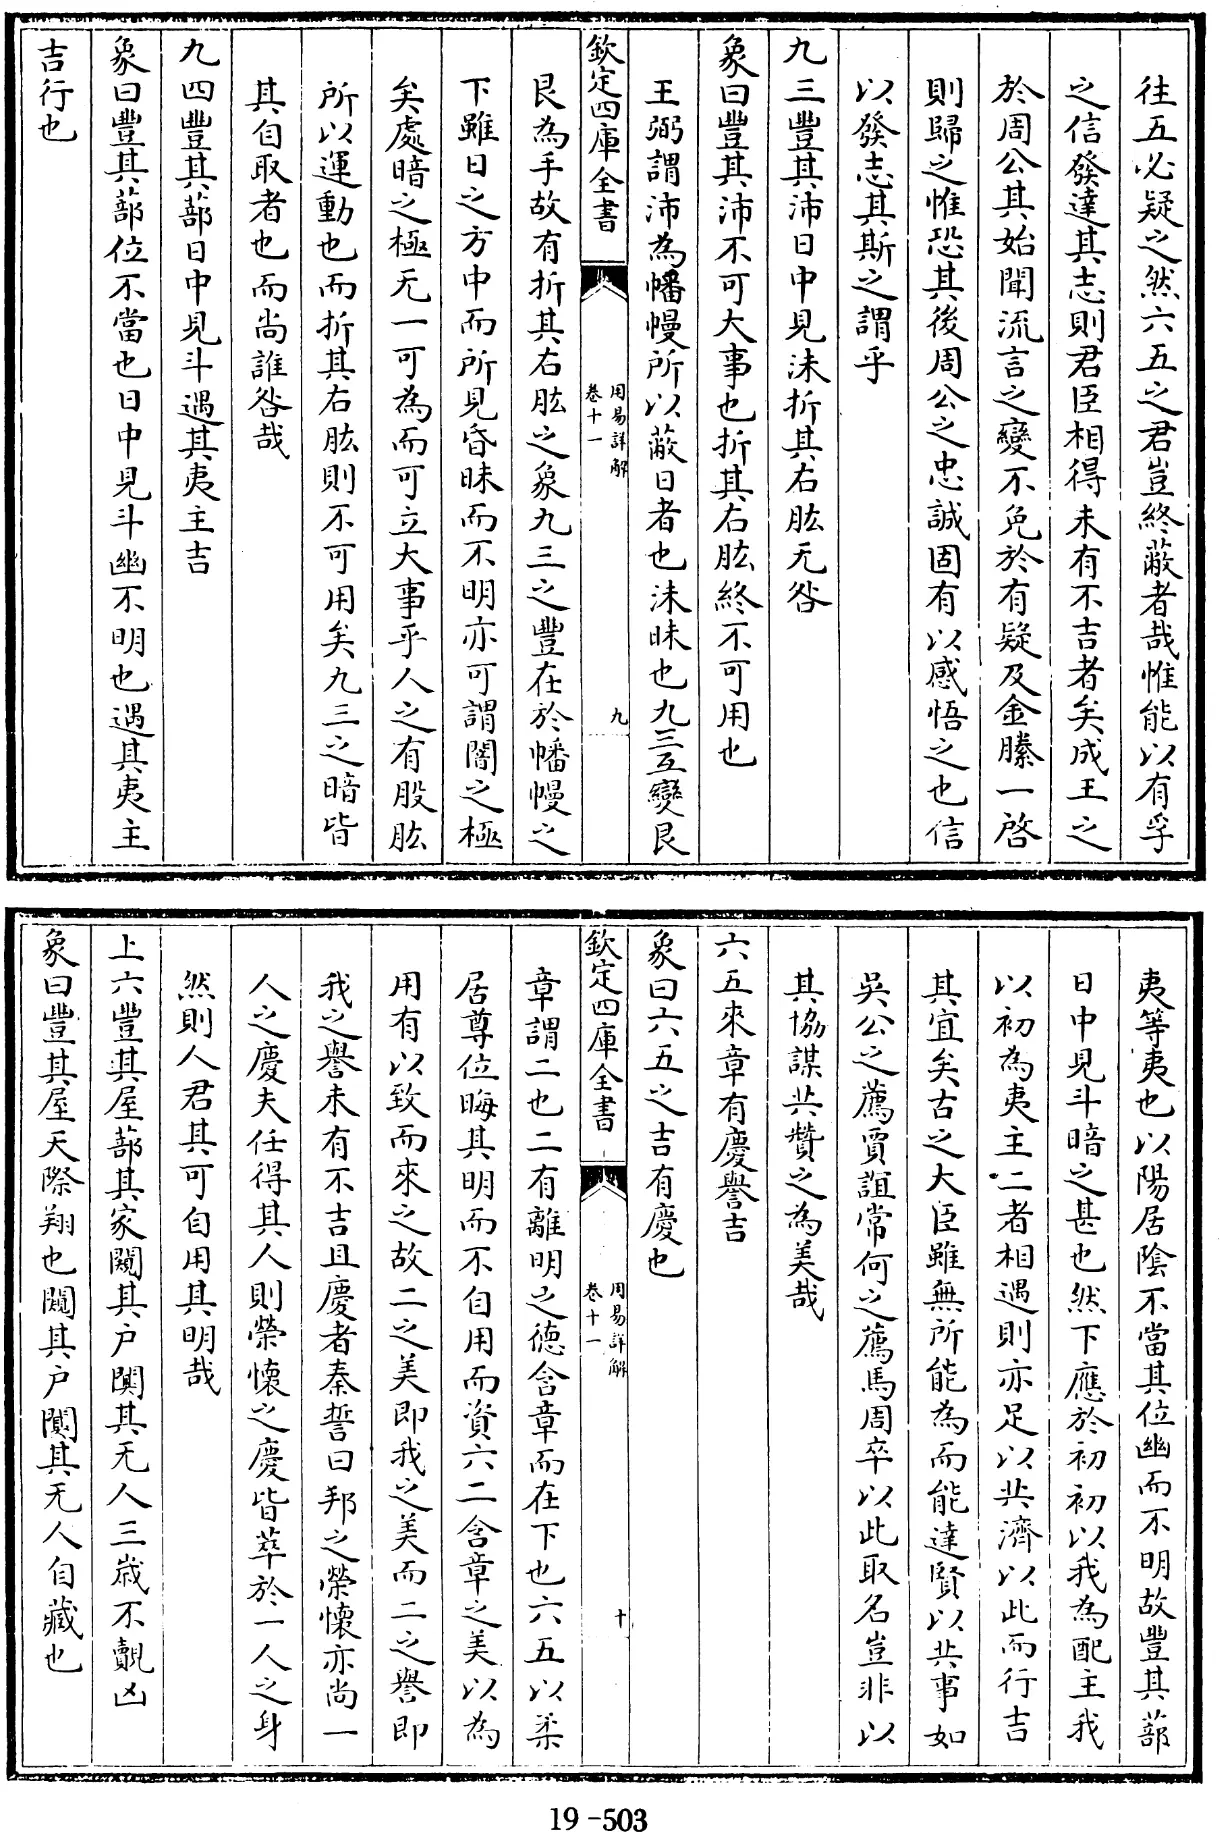 往五必疑之然六五之君豈終蔽者哉惟能以有孚
之信發達其志則君臣相得未有不吉者矣成王之
於周公其始聞流言之變不免於有疑及金縢一啓
則歸之惟恐其後周公之忠誠固有以感悟之也信
以發志其斯之謂乎
九三豐其沛日中見沬折其右肱无咎
象曰豐其沛不可大事也折其右肱終不可用也
王弼謂沛為幡幔所以蔽日者也沬昧也九三互變艮
欽定四庫全書
周易詳解
卷十一
九
艮為手故有折其右肱之象九三之豐在於幡幔之
下雖日之方中而所見昏昧而不明亦可謂闇之極
矣處暗之極无一可為而可立大事乎人之有股肱
所以運動也而折其右肱則不可用矣九三之暗皆
其自取者也而尚誰咎哉
九四豐其蔀日中見斗遇其夷主吉
象曰豐其蔀位不當也日中見斗幽不明也遇其夷主
吉行也
夷等夷也以陽居陰不當其位幽而不明故豐其蔀
日中見斗暗之甚也然下應於初初以我為配主我
以初為夷主二者相遇則亦足以共濟以此而行吉
其宜矣古之大臣雖無所能為而能達賢以共事如
吳公之薦賈誼常何之薦馬周卒以此取名豈非以
其協謀共贊之為美哉
六五來章有慶譽吉
象曰六五之吉有慶也
欽定四庫全書
周易詳解
卷十一
十
章謂二也二有離明之德含章而在下也六五以柔
居尊位晦其明而不自用而資六二含章之美以為
用有以致而來之故二之美即我之美而二之譽即
我之譽未有不吉且慶者秦誓曰邦之榮懷亦尚一
人之慶夫任得其人則榮懷之慶皆萃於一人之身
然則人君其可自用其明哉
上六豐其屋蔀其家闚其户闃其无人三歲不覿凶
象曰豐其屋天際翔也闚其户闃其无人自藏也
19-503